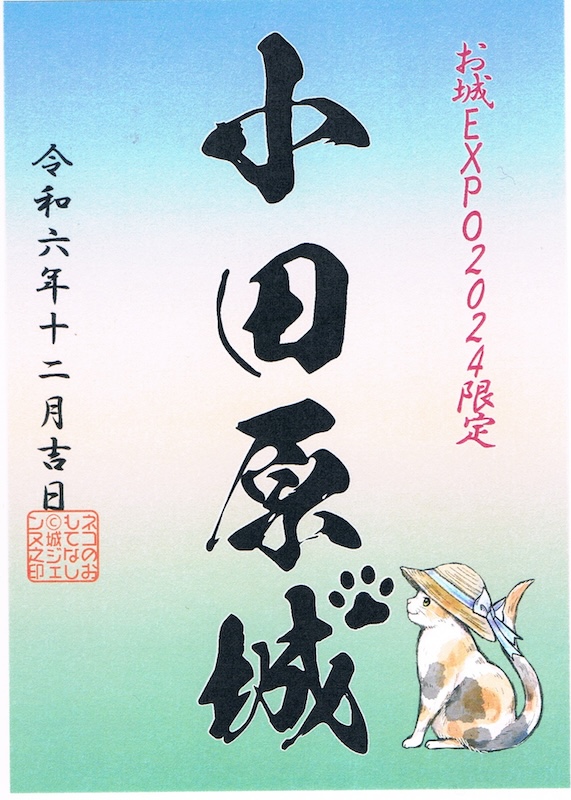 お城EXPO2024限定
小田原城
令和六年十二月吉日
ネコのお
もてなし
©城ジェ
ンヌ之印